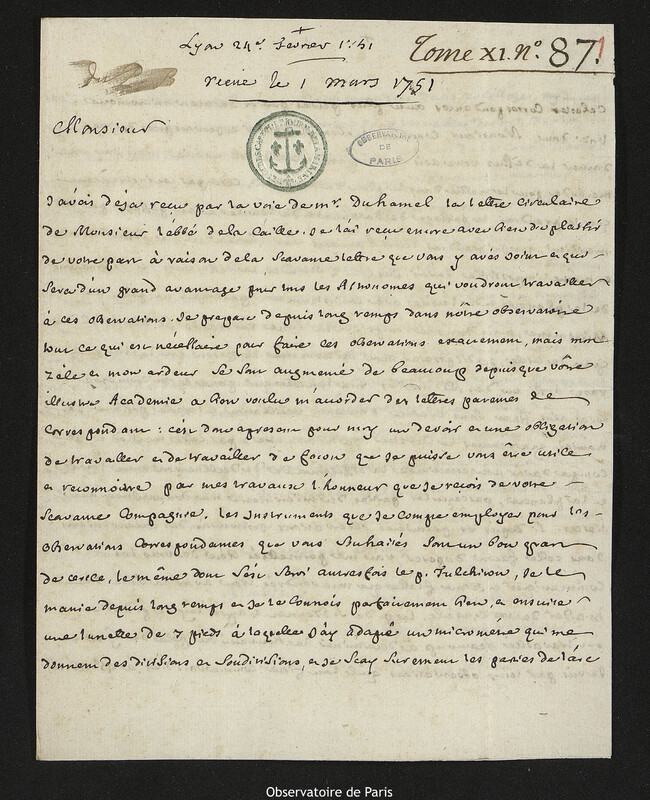 Lyon 24e. fevrier 1751
Tome XI. No. 87.
receüe le 1 mars 1751
Monsieur
OBSERVATOIRE
DE
PARIS
J'avois déja reçu par la voie de mr. Duhamel la lettre circulaire
de Monsieur l'abbé de la Caille. Je l'ai reçu encore avec bien du plaisir
de votre part à raison de la scavante lettre que vous y avés jointe et qui
sera d'un grand avantage pour tous les Astronomes qui voudront travailler
à ces observations. Je prepare depuis long temps dans nôtre observatoire
tout ce qui est nécéssaire pour faire ces observations exactement, mais mon
zèle et mon ardeur se sont augmenté de beaucoup depuis que vôtre
illustre Academie a bien voulu m'accorder des lettres patentes de
Correspondant : c'est donc aprésent pour moy un devoir et une obligation
de travailler et de travailler de façon que je puisse vous être utile
et reconnoitre par mes travaux l'honneur que je reçois de votre
scavante Compagnie. Les instruments que je compte employer pour les
observations correspondantes que vous souhaités sont un bon quart
de cercle, le même dont s'est servi autresfois le p. Fulchiron, je le
manie depuis long temps et je le connois parfaitement bien, et ensuite
une lunette de 7 pieds à laquelle j'ay adapté un micrometre qui me
donnent des divisions et soudivisions, et je scay surement les parties de l'arc
Observatoire de Paris